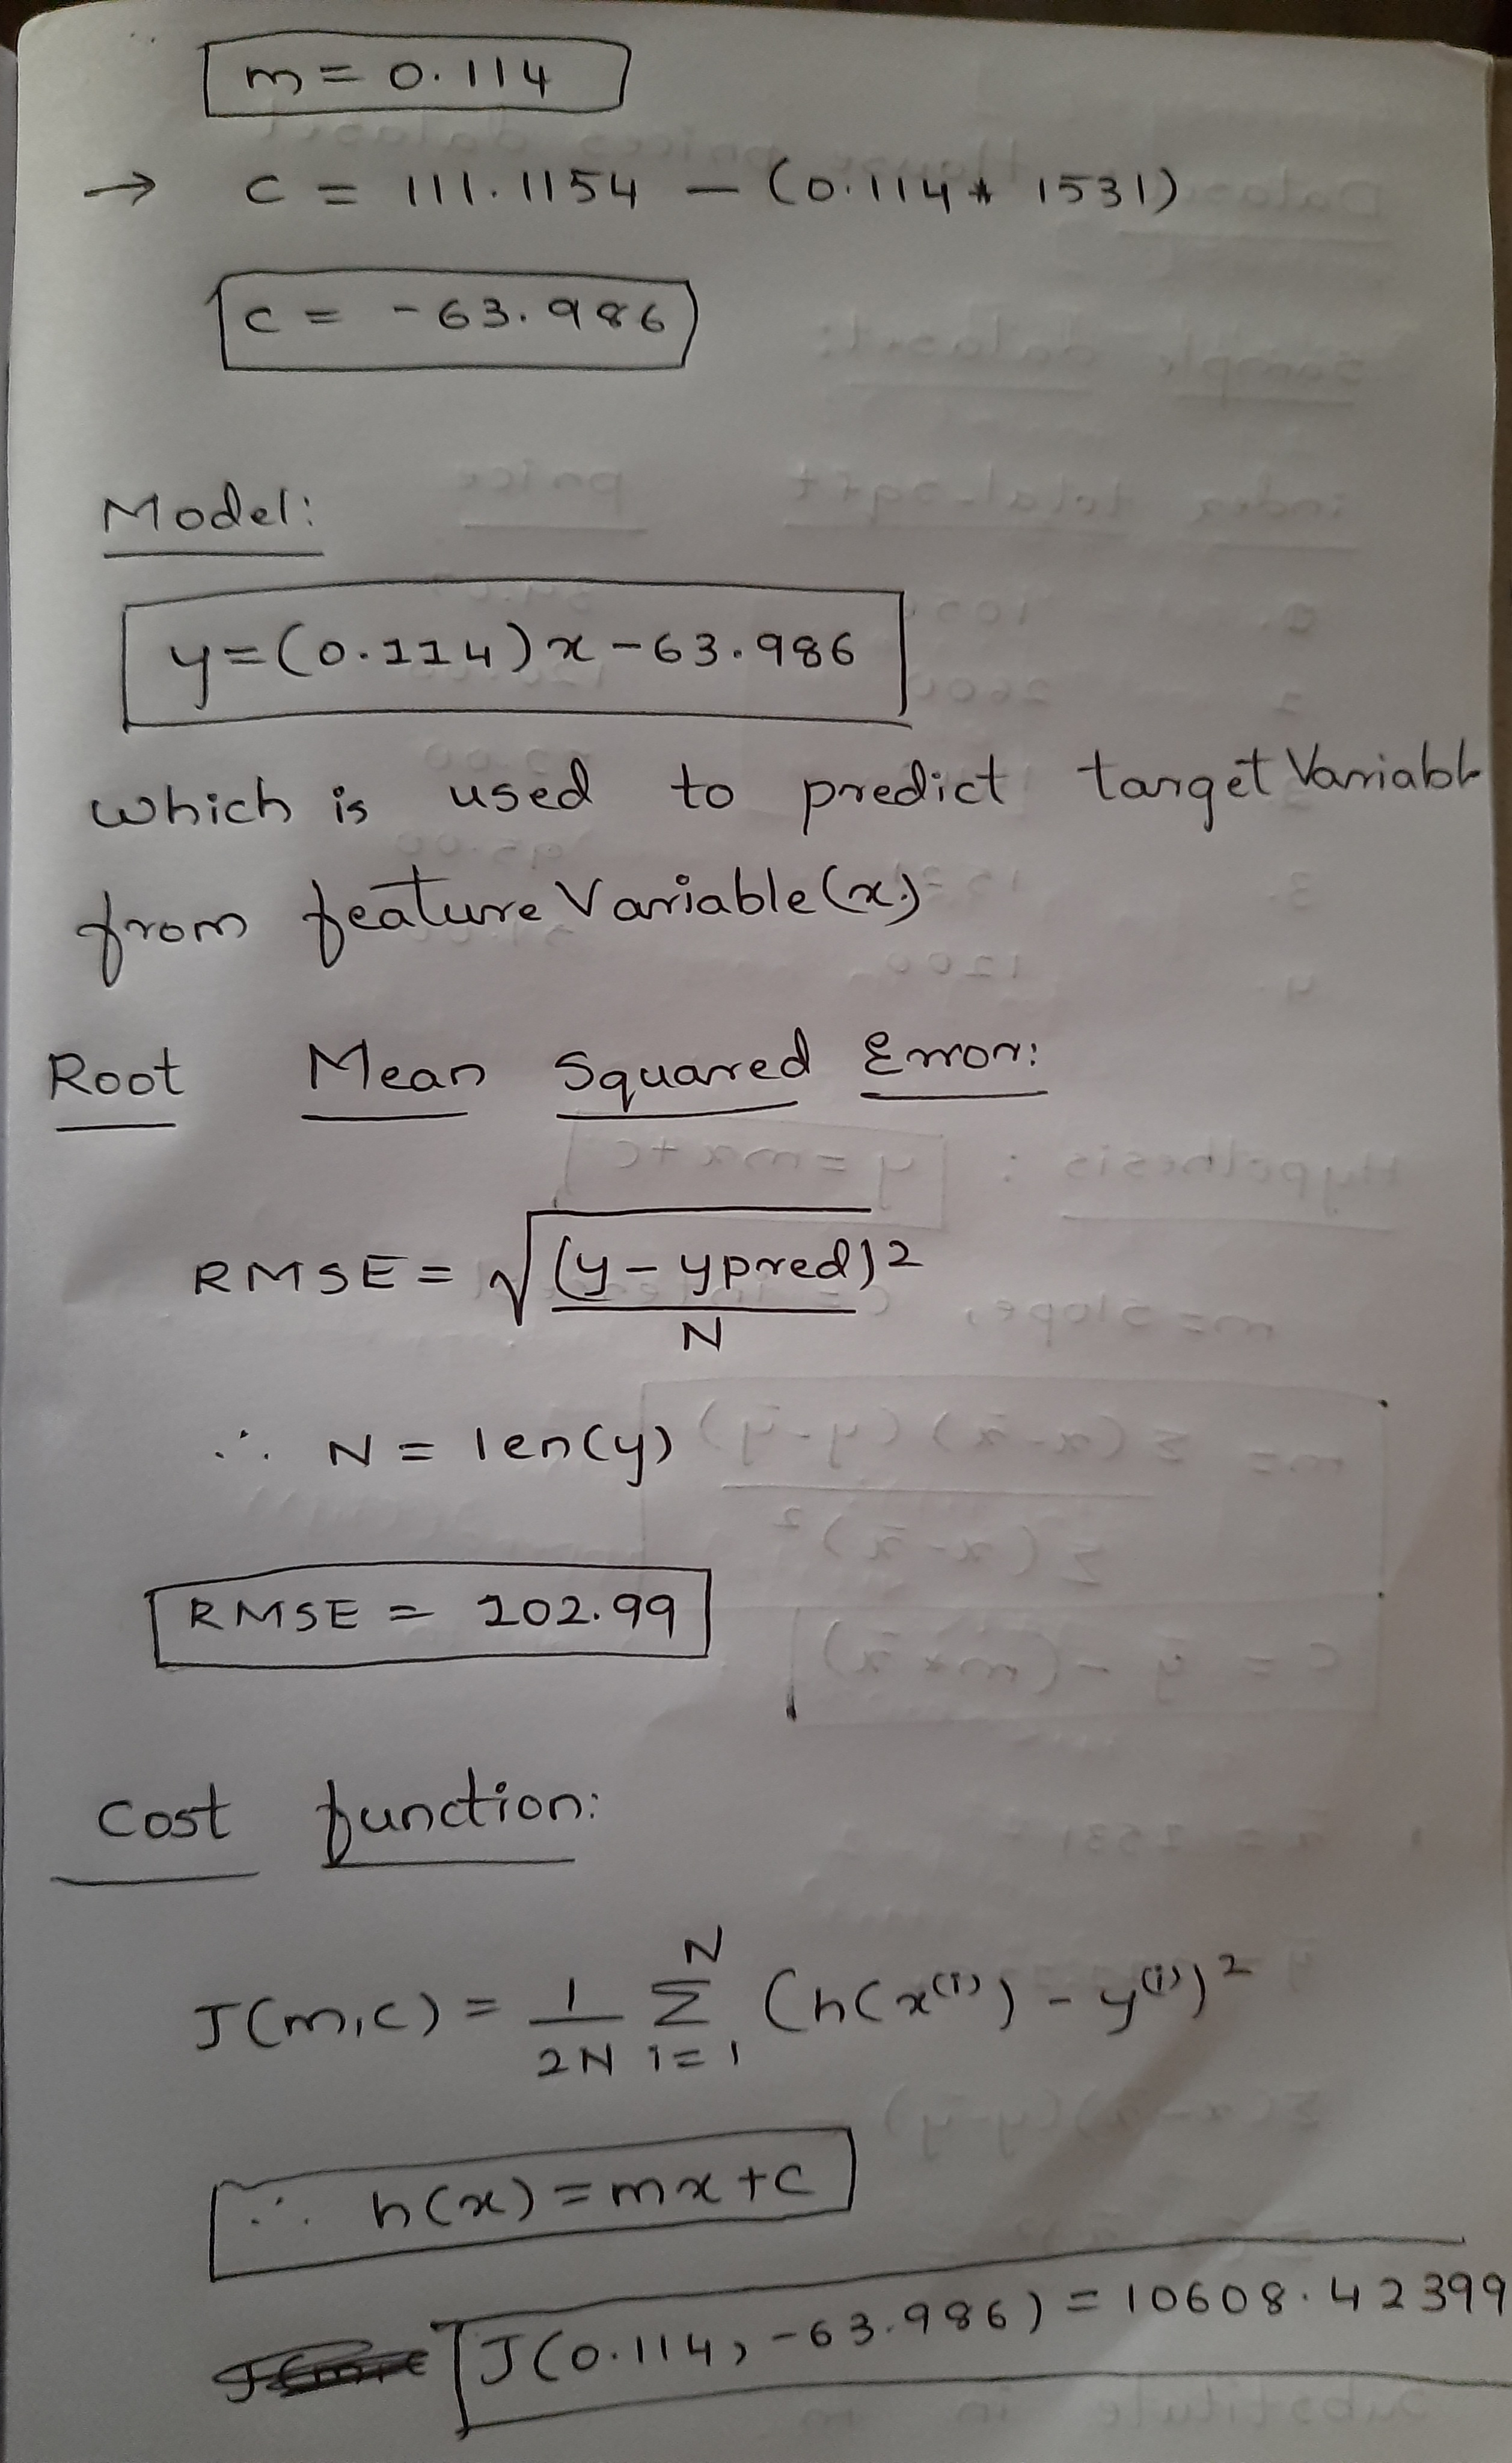 m = 0.114
→ c = 111.1154 - (0.114 * 1531)
c = -63.986
Model:
y=(0.114)x-63.986
which is used to predict target Variable
from feature Variable(x)
Root Mean Squared Error:
RMSE = √((y-ypred)²/N)
∴ N = len(y)
RMSE = 102.99
Cost function:
J(m,c) = 1/2N Σ i=1 N (h(x⁽ⁱ⁾) - y⁽ⁱ⁾)²
∴ h(x) = mx+c
J(0.114, -63.986) = 10608.42399